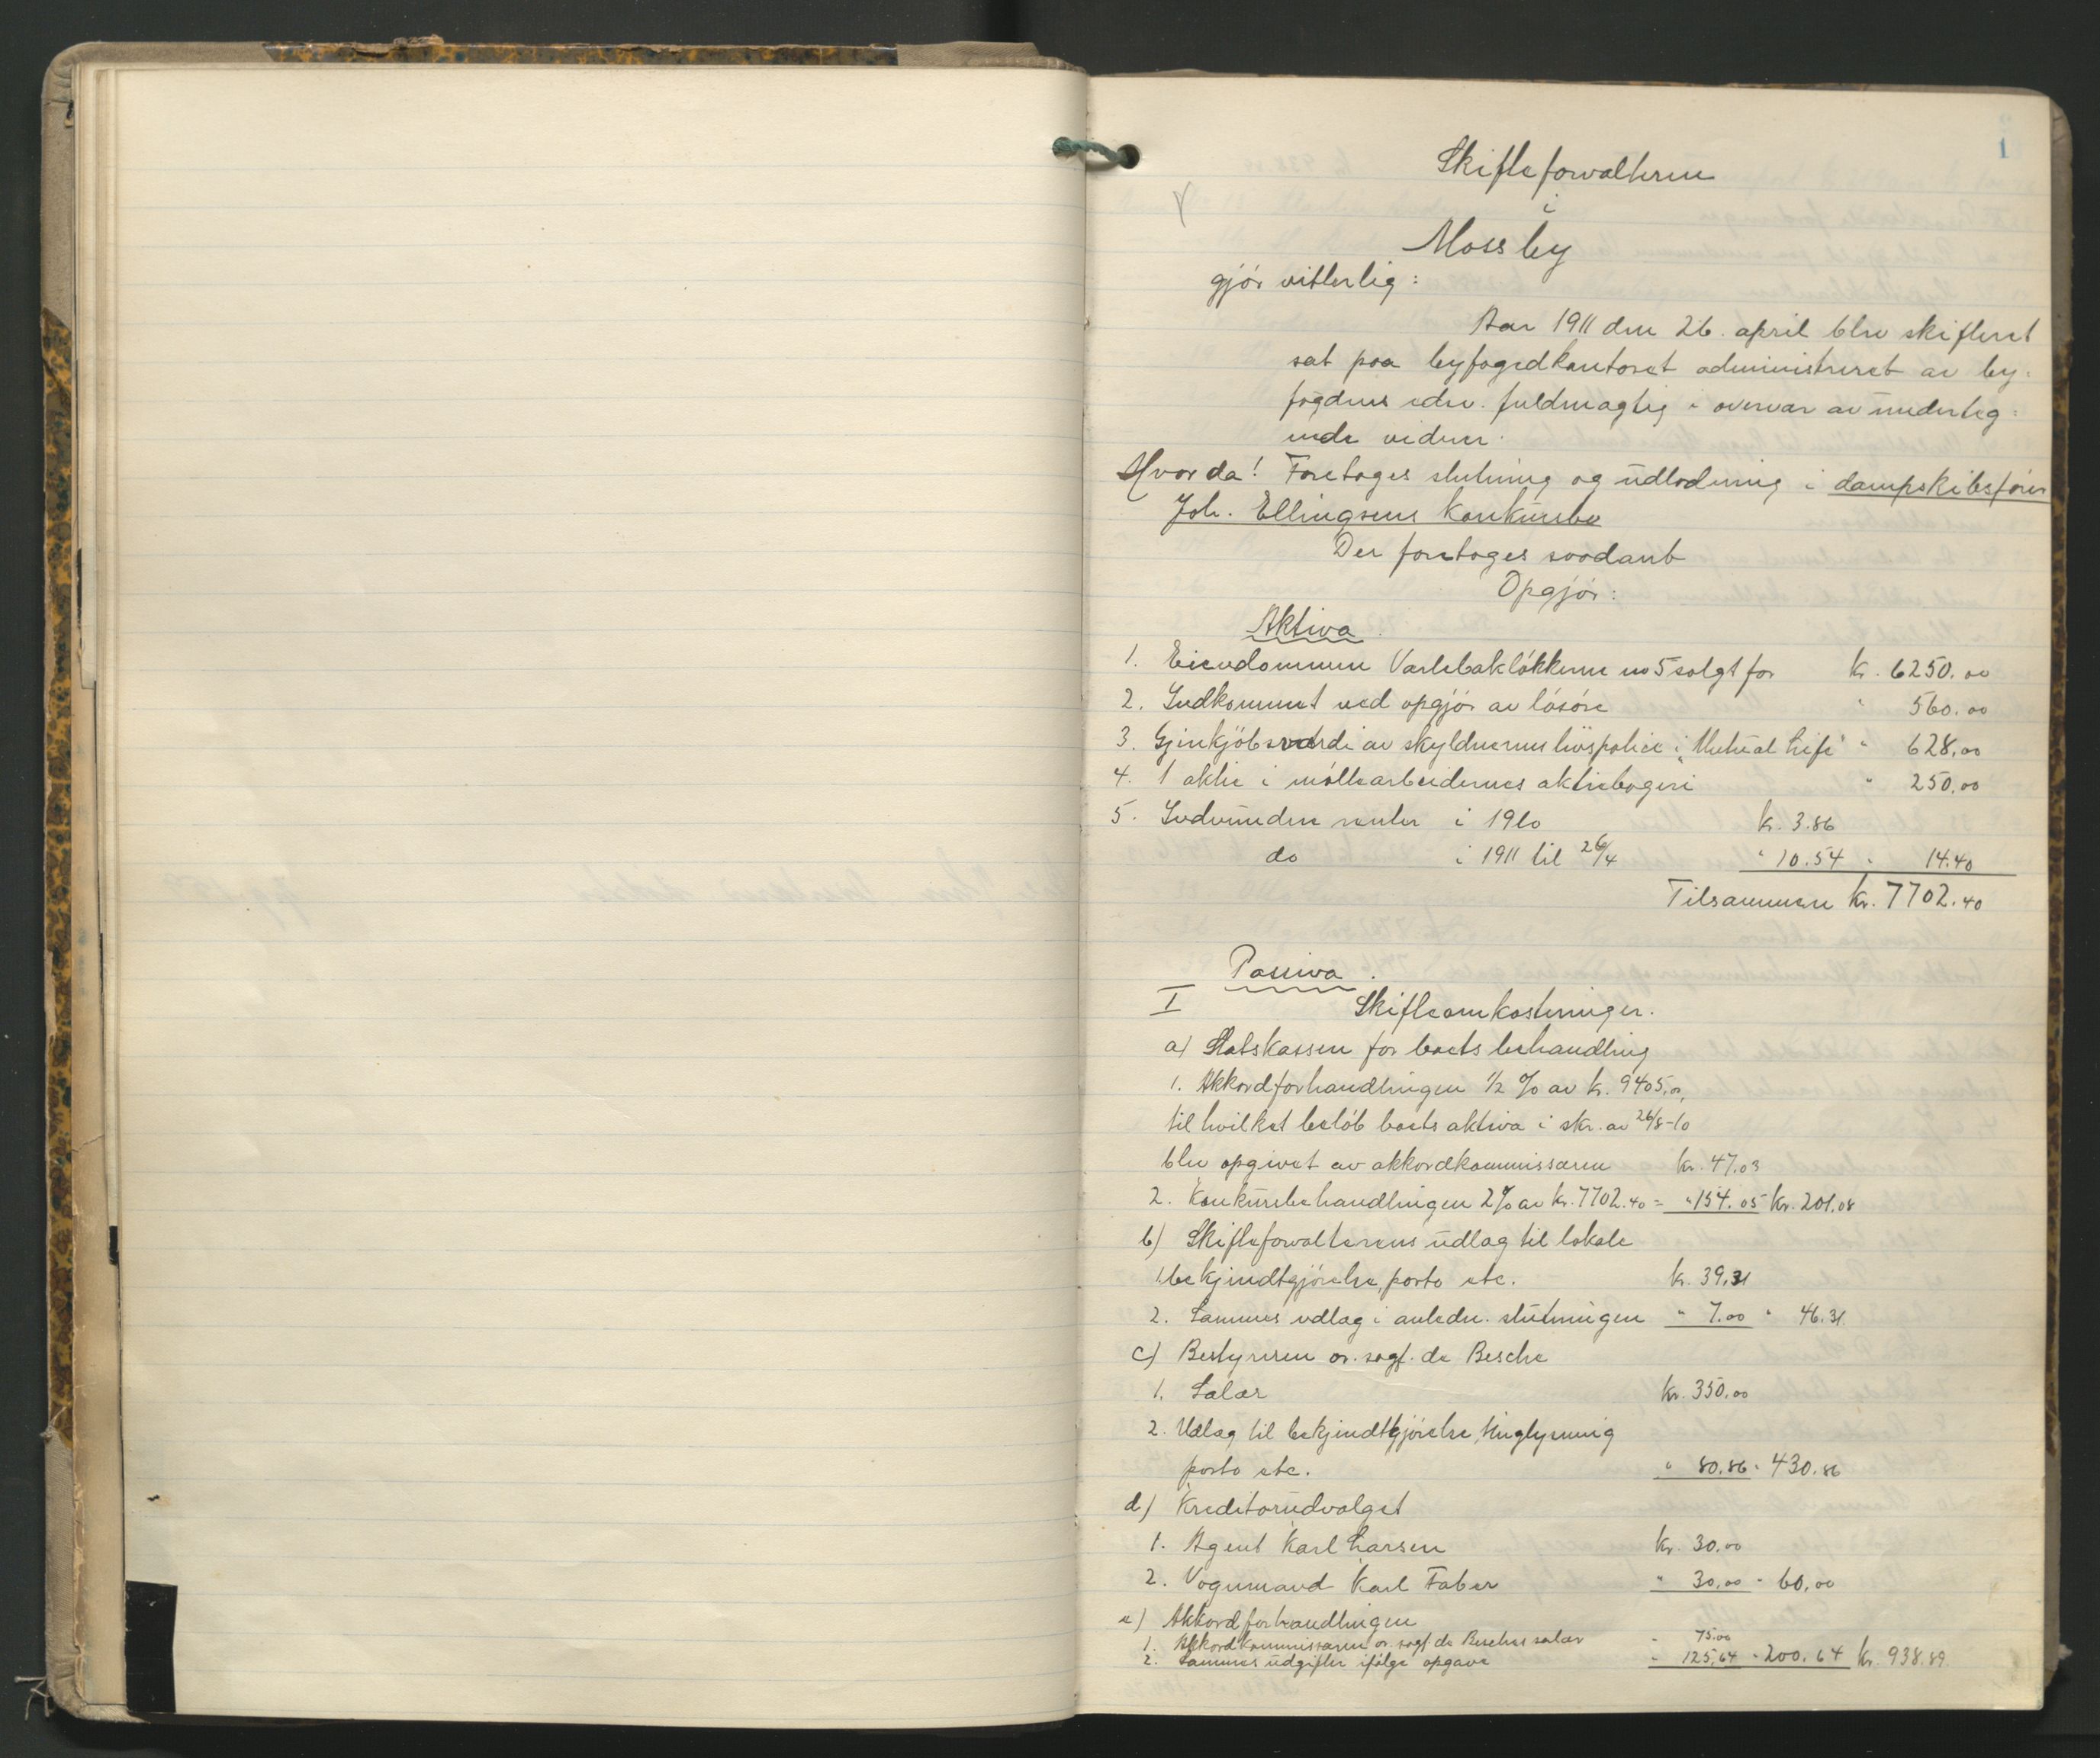 1
Skifteforvalteren
i
Moss by
gjør vitterlig:
Aar 1911 den 26. april blev skifteret
sat paa byfogedkontoret administreret av by-
fogdens edsv. fuldmægtig i overvær av underteg-
nede vidner.
Hvorda! Foretages slutning og udlodning i dampskibsfører
Joh. Ellingsens konkursbo
Der foretages saadant
Opgjør:
Aktiva
1. Eiendommen Varlebakløkkerne no 5 solgt for kr. 6250.00
2. Indkommet ved opgjør av løsøre " 560.00
3. Gjenkjøbsværdi av skyldnerens livspolice i "Mutual Life" " 628.00
4. 1 aktie i møllearbeidernes aktiebageri " 250.00
5. Indvundne renter i 1910 kr. 3.86
do i 1911 til 26/4 " 10.54 " 14.40
Tilsammen kr. 7702.40
Passiva.
I Skifteomkostninger.
a) Statskassen for boets behandling
1. Akkordforhandlingen 1/2 % av kr. 9405.00,
til hvilket beløb boets aktiva i skr. av 26/8-10
blev opgivet av akkordkommissæren kr. 47.03
2. Konkursbehandlingen 2% av kr. 7702.40 = " 154.05 kr. 201.08
b) Skifteforvalterens udlæg til lokale
1. bekjendtgjørelse, porto etc. kr. 39.31
2. Sammes udlæg i anledn. slutningen " 7.00 " 46.31
c) Bestyreren or. sagf. de Besche
1. Salær kr. 350.00
2. Udlæg til bekjendtgjørelse, tinglysning
porto etc. " 80.86 " 430.86
d) Kreditorudvalget
1. Agent Karl Larsen kr. 30.00
2. Vognmand Karl Faber " 30.00 " 60.00
e) Akkordforhandlingen
1. Akkordkommissæren or. sagf. de Besches salær " 75.00
2. Sammes udgifter ifølge opgave " 125.64 " 200.64 kr. 938.89